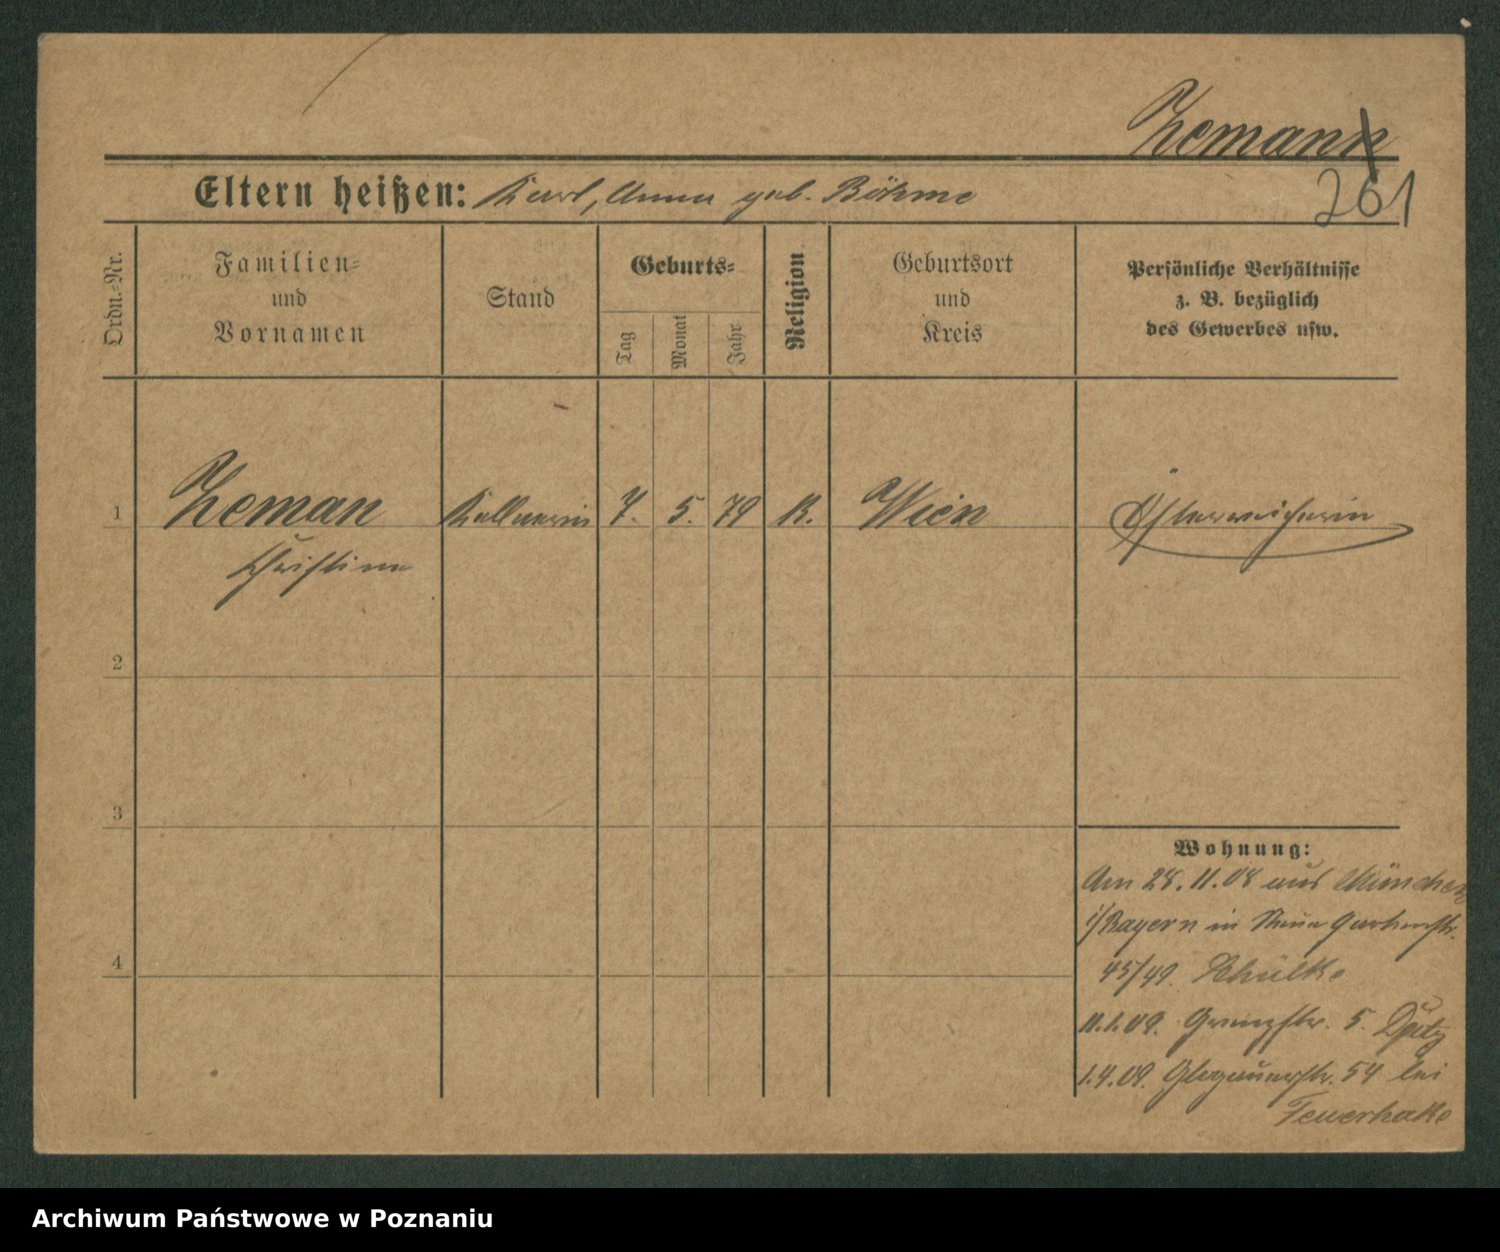 Zemann
261
Eltern heißen: Karl, Anna geb. Böhme
Ordn.-Nr.
Familien-
und
Vornamen
Stand
Geburts-
Tag
Monat
Jahr
Religion
Geburtsort
und
Kreis
Persönliche Verhältnisse
z. B. bezüglich
des Gewerbes usw.
1 Zeman Kellnerin 7. 5. 79 K. Wien Österreicherin
Christina
2
3
4
Wohnung:
Am 28.11.08 aus München
i/Bayern in Neue Gartenstr.
45/49. Schülke
11.1.09. Grenzstr. 5. Opitz
1.4.09. Glogauerstr. 54 bei
Feuerhake
Archiwum Państwowe w Poznaniu